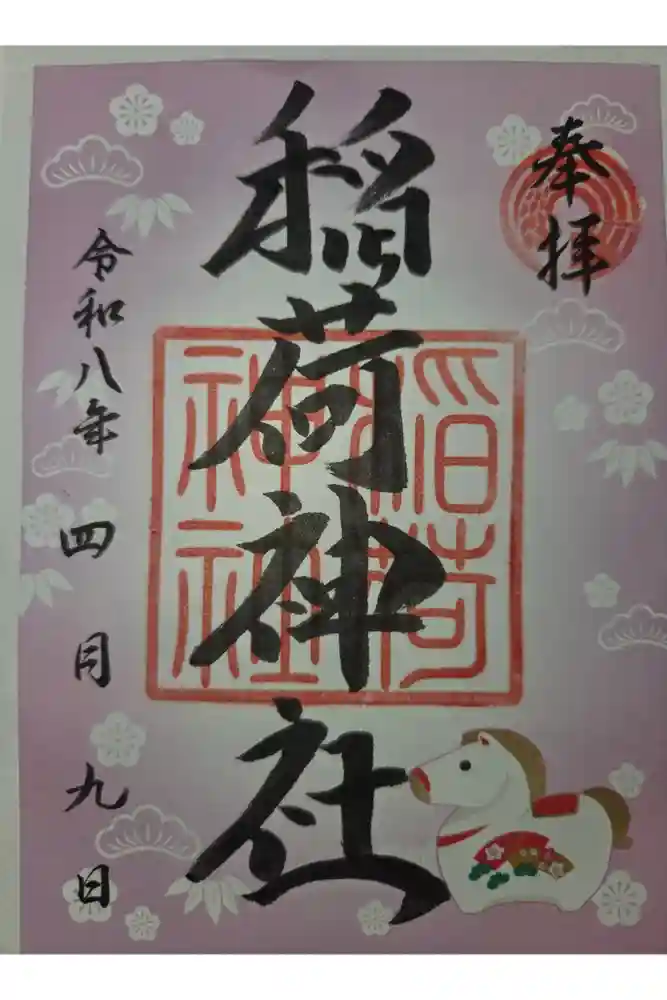 奉拝
稲荷神社
稲荷
神社
令和八年 四月九日